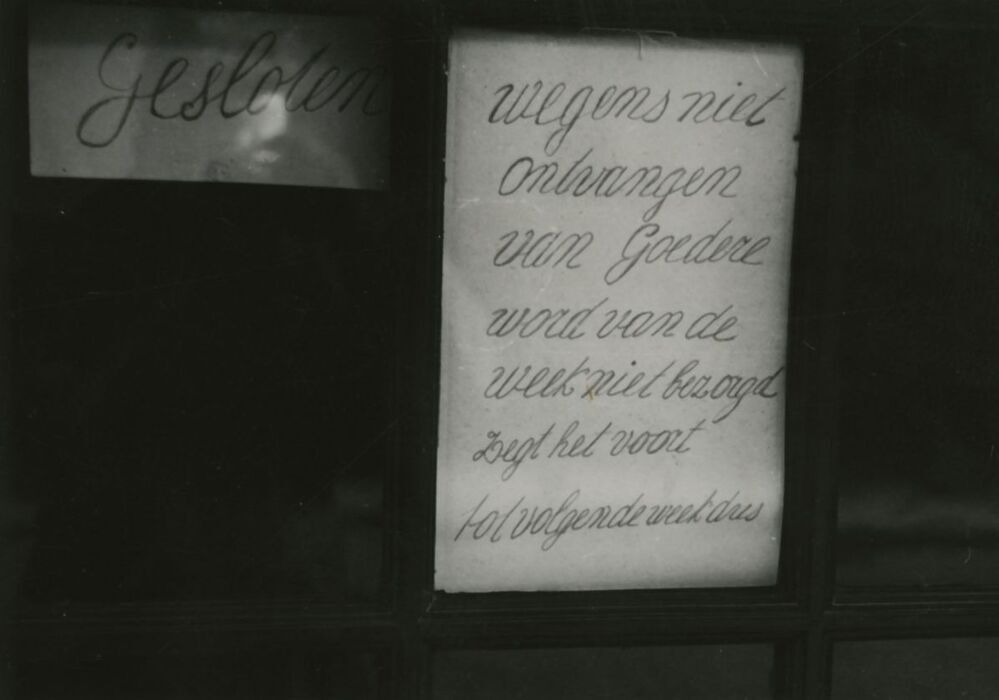 Gesloten
wegens niet
ontvangen
van Goedere
word van de
week niet bezorgd
Zegt het voort
tot volgende week dus